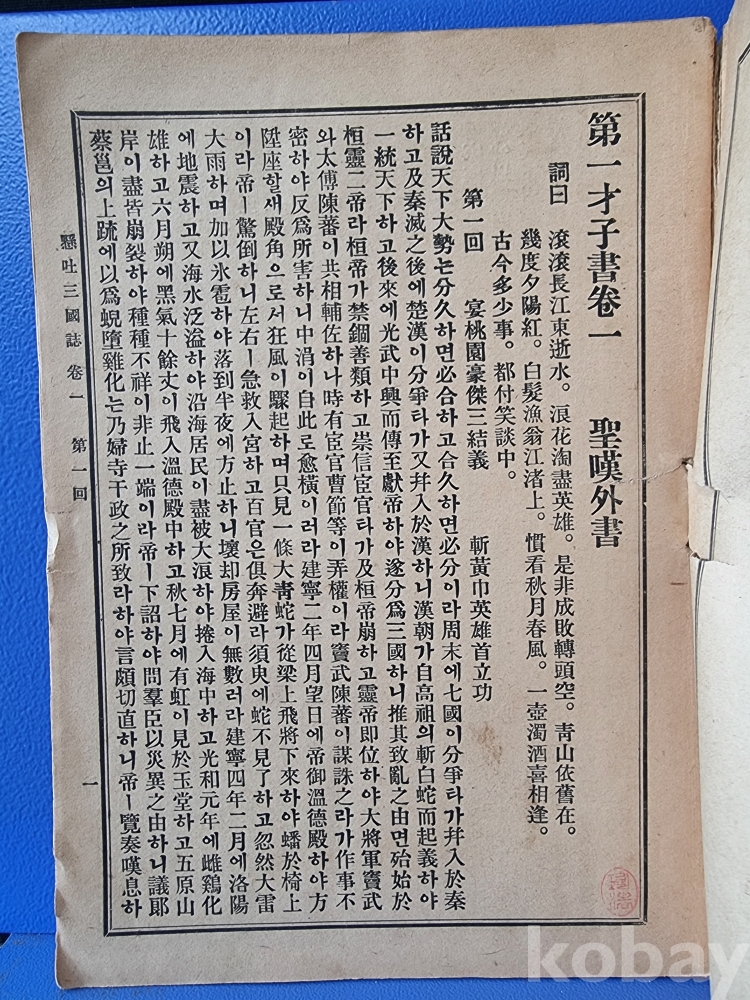 第一才子書卷一 聖嘆外書
詞曰 滾滾長江東逝水。浪花淘盡英雄。是非成敗轉頭空。靑山依舊在。
幾度夕陽紅。白髮漁翁江渚上。慣看秋月春風。一壺濁酒喜相逢。
古今多少事。都付笑談中。
第一回 宴桃園豪傑三結義 斬黃巾英雄首立功
話說天下大勢는分久하면必合하고合久하면必分이라周末에七國이分爭타가幷入於秦
하고及秦滅之後에楚漢이分爭타가又幷入於漢하니漢朝가自高祖의斬白蛇而起義하야
一統天下하고後來에光武中興而傳至獻帝하야遂分爲三國하니推其致亂之由면殆始於
桓靈二帝라桓帝가禁錮善類하고崇信宦官타가及桓帝崩하고靈帝卽位하야大將軍竇武
와太傅陳蕃이共相輔佐하나時有宦官曹節等이弄權이라竇武陳蕃이謀誅之라가作事不
密하야反爲所害하니中涓이自此로愈橫이러라建寧二年四月望日에帝御溫德殿하야方
陞座할새殿角으로서狂風이驟起하며只見一條大靑蛇가從梁上飛將下來하야蟠於椅上
이라帝ㅣ驚倒하니左右ㅣ急救入宮하고百官은俱奔避라須臾에蛇不見了하고忽然大雷
大雨하며加以氷雹하야落到半夜에方止하니壞却房屋이無數러라建寧四年二月에洛陽
에地震하고又海水泛溢하야沿海居民이盡被大浪하야捲入海中하고光和元年에雌鷄化
雄하고六月朔에黑氣十餘丈이飛入溫德殿中하고秋七月에有虹이見於玉堂하고五原山
岸이盡皆崩裂하야種種不祥이非止一端이라帝ㅣ下詔하야問羣臣以災異之由하니議郞
蔡邕의上疏에以爲蜺墮雞化는乃婦寺干政之所致라하야言頗切直하니帝ㅣ覽奏嘆息하
懸吐三國誌 卷一 第一回
一
kobay